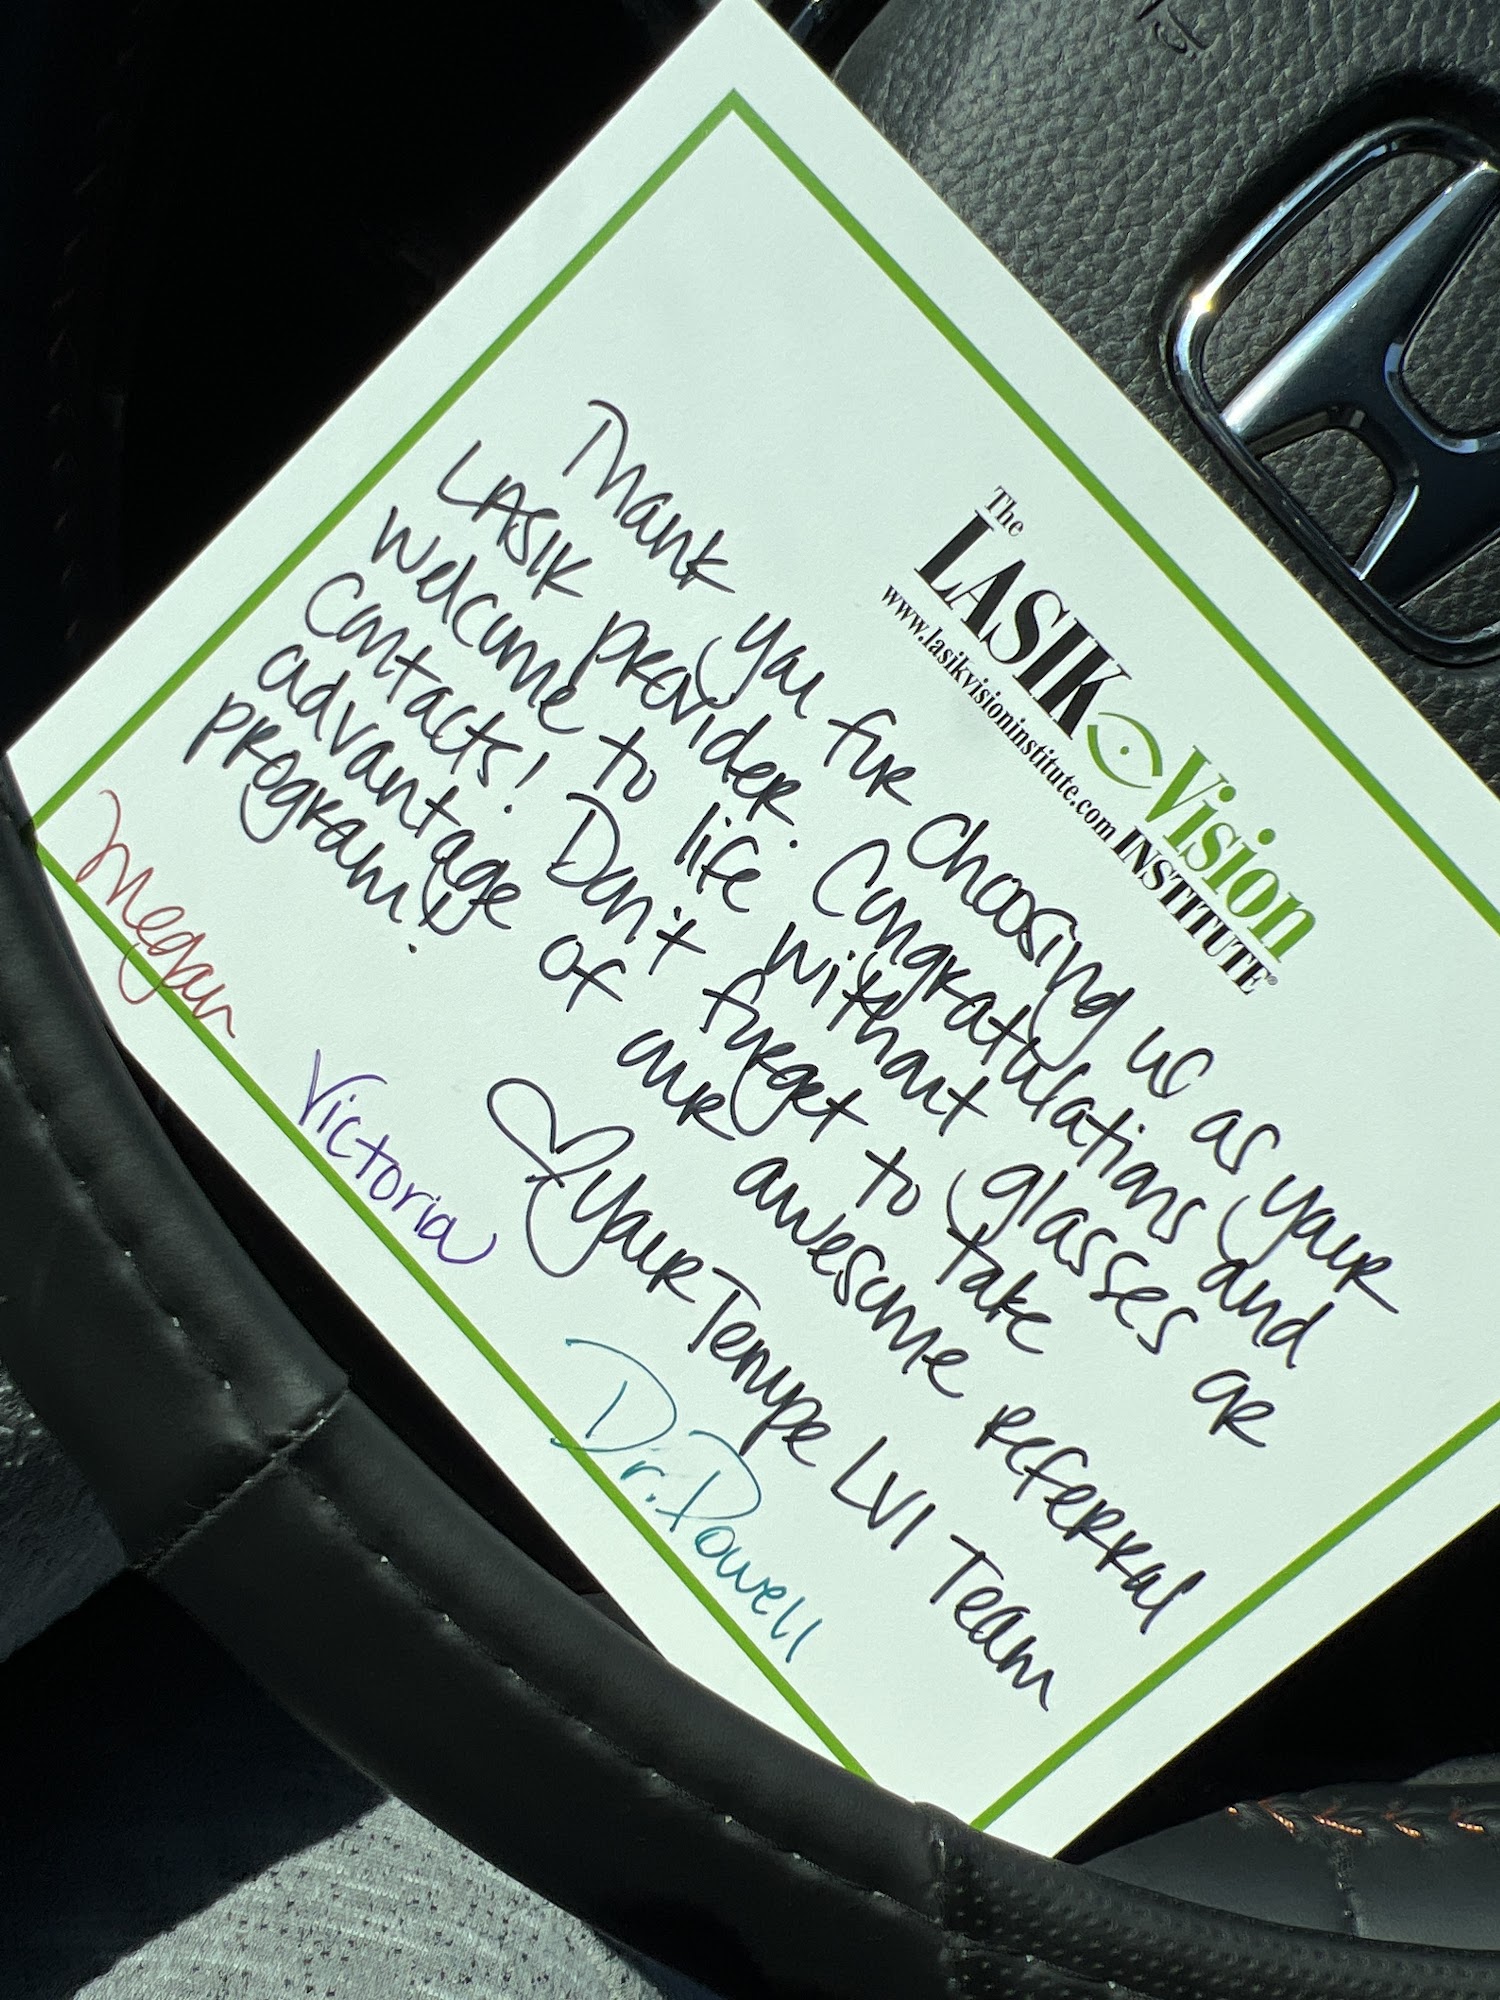 The
LASIK Vision
www.lasikvisioninstitute.com INSTITUTE®
Thank you for choosing us as your
LASIK provider. Congratulations and
welcome to life without glasses or
contacts! Don't forget to take
advantage of our awesome referral
program!
Your Tempe LVI Team
Megan
Victoria
Dr. Powell